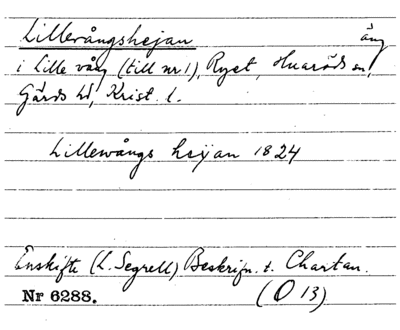 Lillevångshejan äng
i Lille vång (till nr 1), Ryet, Huaröds sn,
Gärds hd, Krist. l.
Lillewångs heijan 1824
Enskifte (L. Segrell) Beskrifn. t. Chartan.
Nr 6288. (O 13)